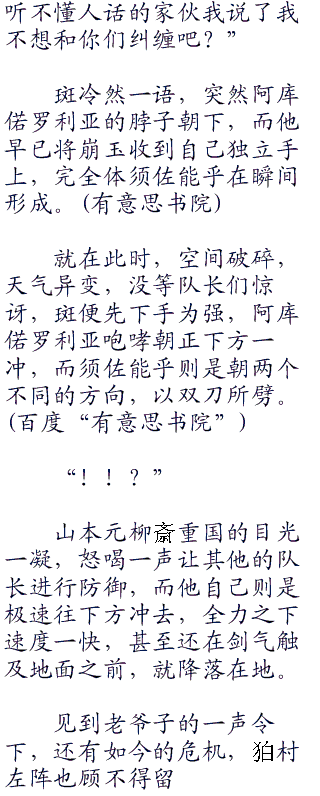 听不懂人话的家伙我说了我
不想和你们纠缠吧？”
斑冷然一语，突然阿库
偌罗利亚的脖子朝下，而他
早已将崩玉收到自己独立手
上，完全体须佐能乎在瞬间
形成。(有意思书院)
就在此时，空间破碎，
天气异变，没等队长们惊
讶，斑便先下手为强，阿库
偌罗利亚咆哮朝正下方一
冲，而须佐能乎则是朝两个
不同的方向，以双刀所劈。
(百度“有意思书院”)
“！！？”
山本元柳斎重国的目光
一凝，怒喝一声让其他的队
长进行防御，而他自己则是
极速往下方冲去，全力之下
速度一快，甚至还在剑气触
及地面之前，就降落在地。
见到老爷子的一声令
下，还有如今的危机，狛村
左阵也顾不得留